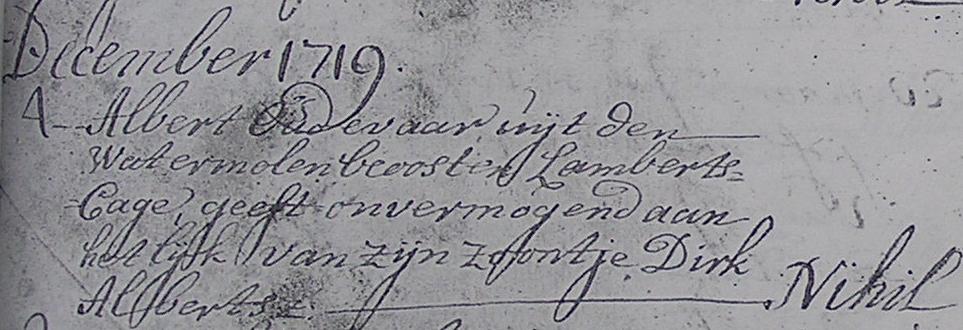 December 1719.
4 Albert Oudevaar uijt den
Watermolen beoosten Lamberts=
Cage, geeft onvermogend aan
het lijk van zijn zoontje Dirk
Albertsz. Nihil